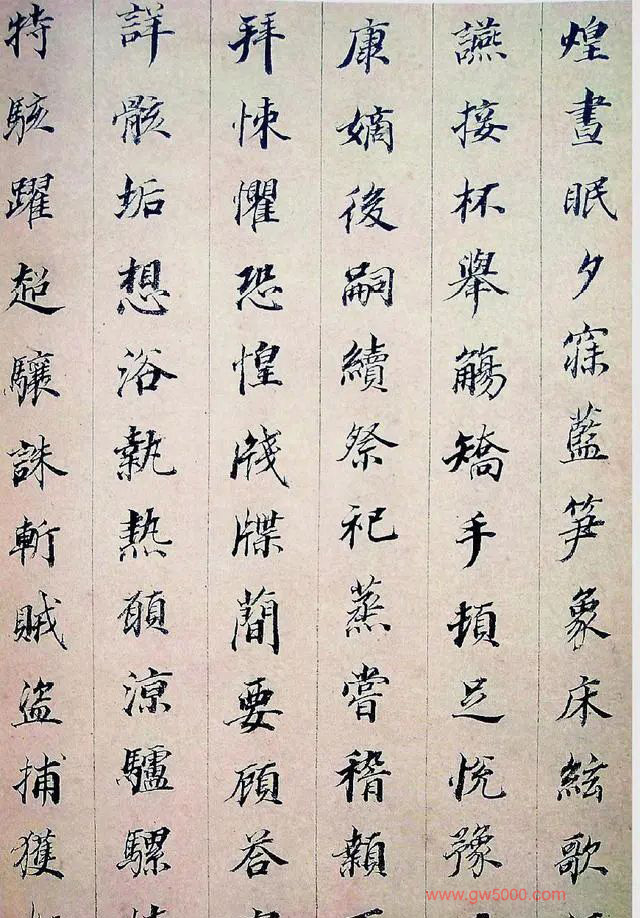 煌晝眠夕寐藍笋象床絃歌
讌接杯舉觴矯手頓足悅豫
康嫡後嗣續祭祀蒸嘗稽顙
拜悚懼恐惶牋牒簡要顧荅
詳骸垢想浴執熱願涼驢騾
特駭躍超驤誅斬賊盜捕獲
www.gw5000.com